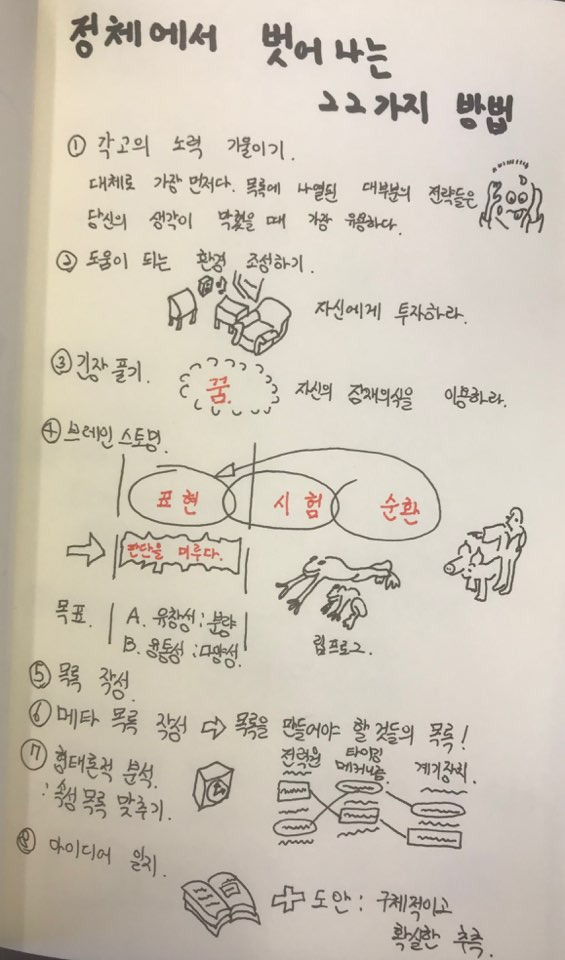 정체에서 벗어나는
22가지 방법
① 각고의 노력 기울이기.
대체로 가장 먼저다. 목록에 나열된 대부분의 전략들은
당신의 생각이 막혔을 때 가장 유용하다.
② 도움이 되는 환경 조성하기.
자신에게 투자하라.
③ 긴장 풀기.
꿈.
자신의 잠재의식을 이용하라.
④ 브레인 스토밍.
표현
시험
순환
판단을 미루다.
목표.
A. 유창성 : 분량
B. 융통성 : 다양성.
림프로그.
⑤ 목록 작성.
⑥ 메타 목록 작성 ⇨ 목록을 만들어야 할 것들의 목록!
⑦ 형태론적 분석.
: 속성 목록 맞추기.
전력원
타이밍
메커니즘.
계기장치.
⑧ 아이디어 일지.
+ 도안 : 구체적이고
확실한 추측.